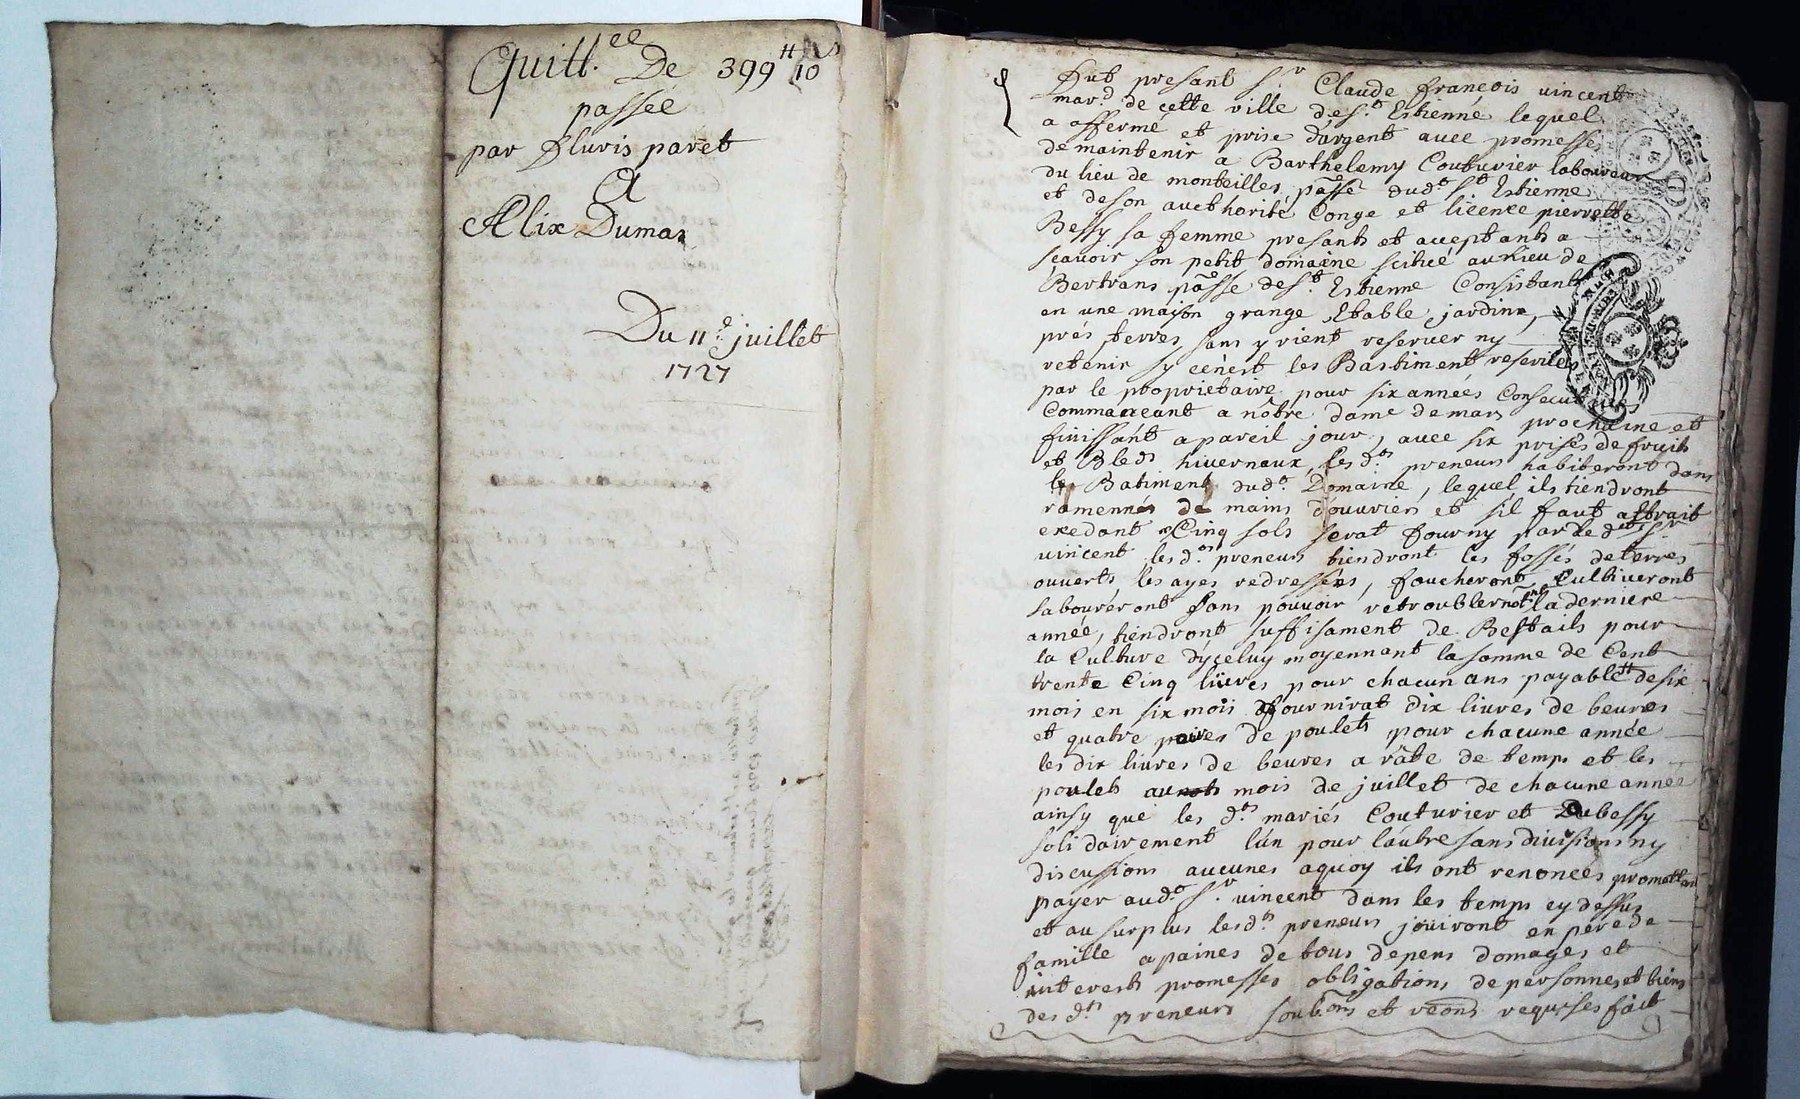 Quitt.ce De 399# 10s
passée
par fluris paret
A
Alix Dumas
Du 11e. juillet
1727
fut presant sr. Claude françois vincent
mard. de cette ville de st. Estienne lequel
a affermé et prise d'argent avec promesse
de maintenir a Barthelemy Couturier laboureur
du lieu de monteilles, passe dudt. st. Estienne
et deson aucthorité Conge et licence pierrette
Bessy sa femme presants et aceptants a
scavoir son petit domaine scitué au lieu de
Bertrans passe de st. Estienne Consistant
en une maison grange Etable jardins,
prés terres, sans y rient reserver ny
retenir sy cè n'est les Bastiment reservées
par le propriétaire, pour six années Consecutives
Commançeant a nôtre dame de mars prochaine et
finissant a pareil jour, avec six prises de fruits
et Bleds hivernaux, lesdts. preneurs habiteront dans
le Batiment dudt. Domaine, lequel ils tiendront
ramennés de mains d'ouvriers et s'il faut attrait
exedant Cinq sols serat fourny par ledt. sr.
vincent, lesdts. preneurs tiendront les fossés de terres
ouverts les ayes redressées, faucheront Cultiveront
labouréront sans pouvoir retroubler la derniere
année, tiendront suffisament de Bestails pour
la Culture d'yceluy moyennant la somme de Cent
trente Cinq livres pour chacun ans payable de six
mois en six mois fournirat dix livres de beurres
et quatre paires de poulets pour chacune année
les dix livres de beures a râte de temps et les
poulets au mois de juillet de chacune année
ainsy que les dts. mariés Couturier et Dubessy
solidairement l'un pour l'autre sans divisions ny
discussions aucunes aquoy ils ont renoncés promettant
payer audt. sr. vincent dans les temps cy dessus
et au surplus lesdts. preneurs jouiront en père de
famille apaines de tous depens domages et
interests promesses obligations de personnes et biens
des dts. preneurs soubons et reons requises fait